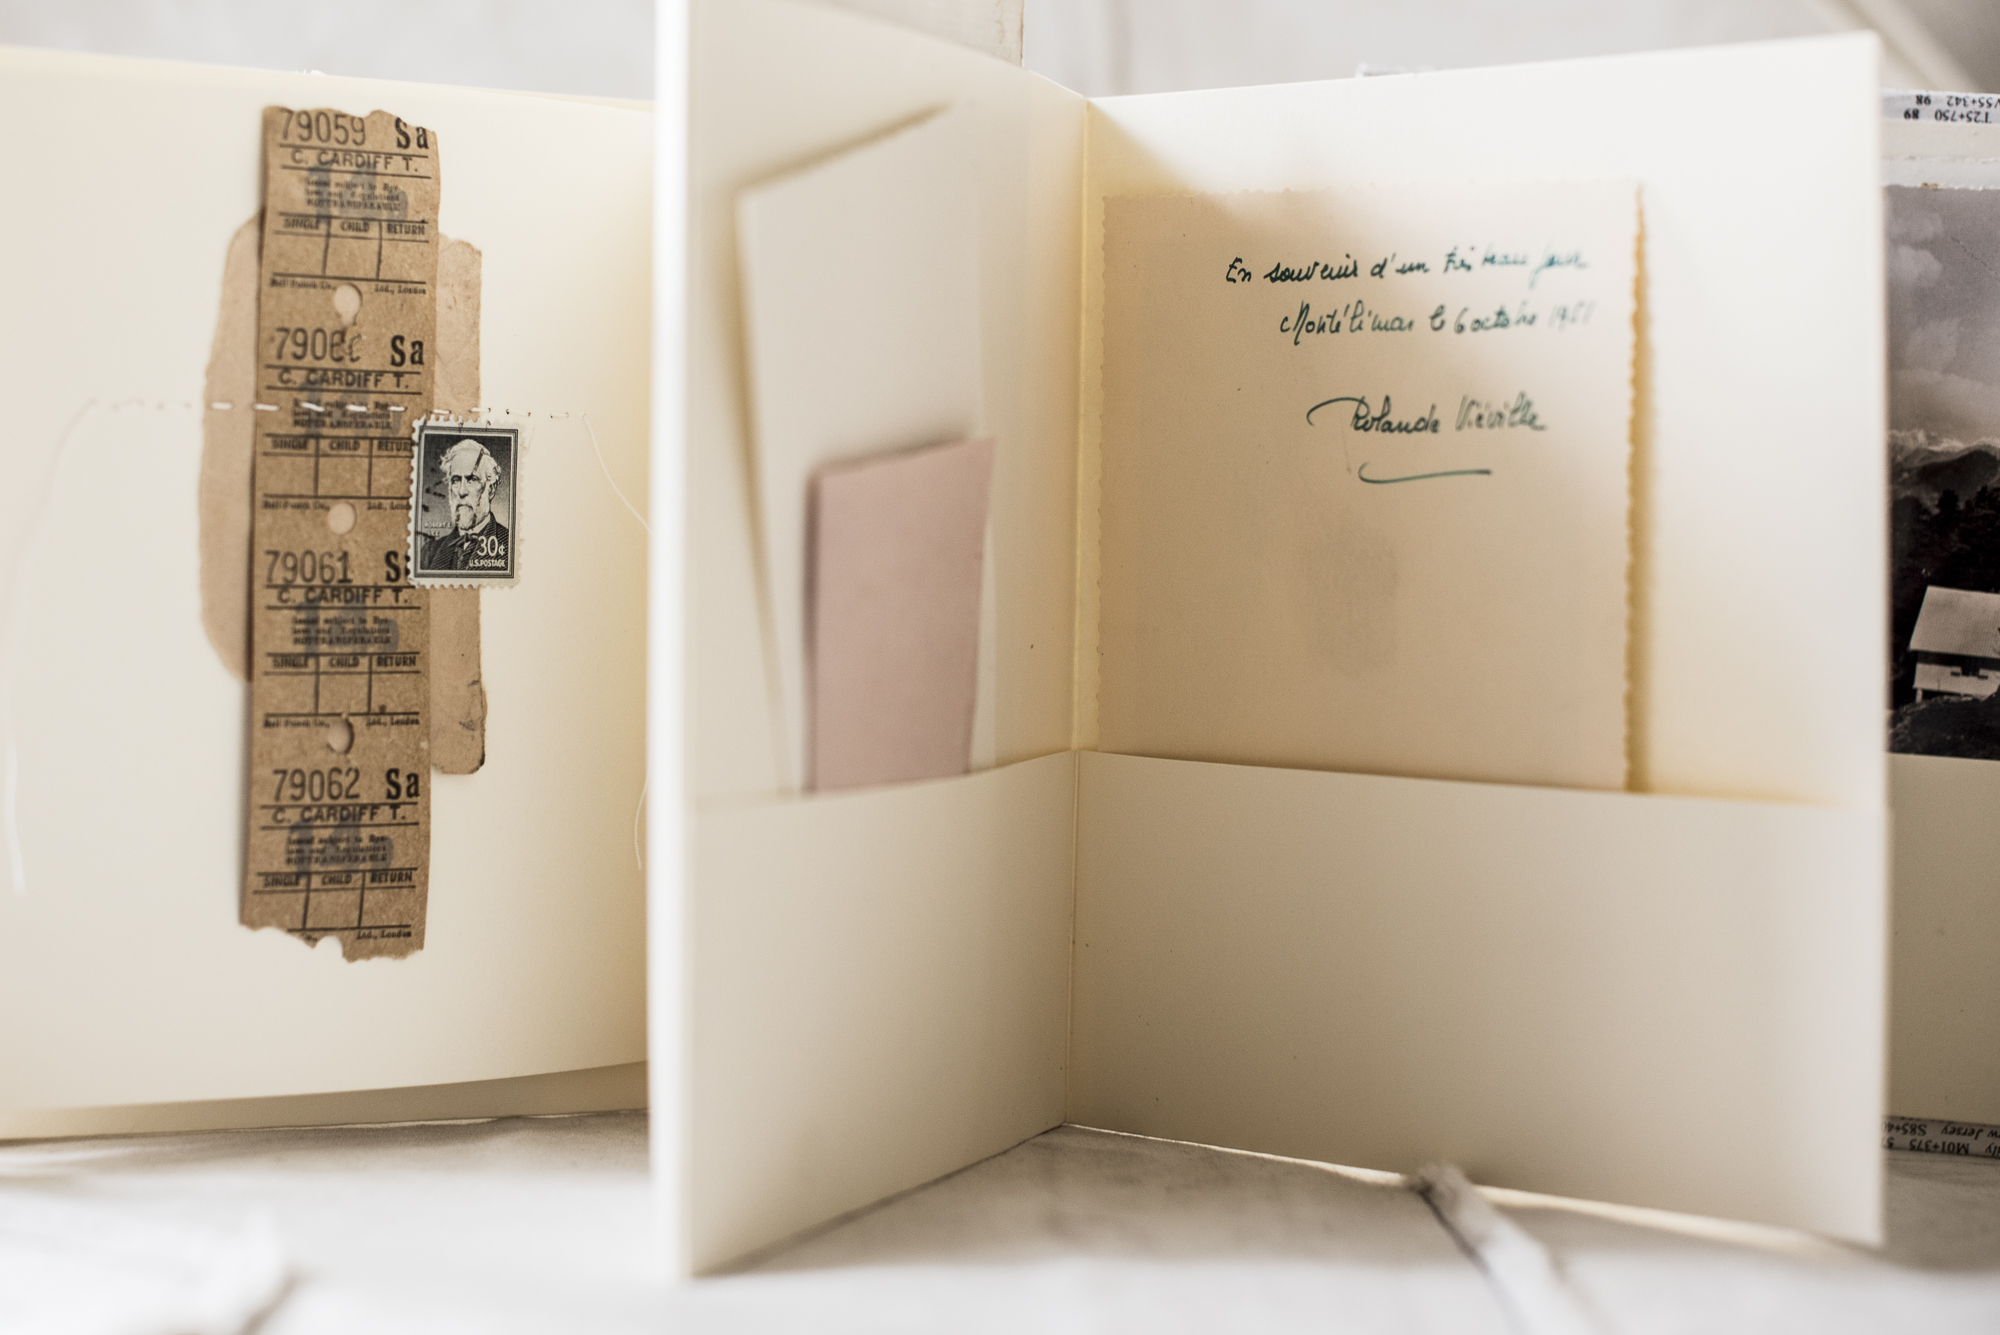 79059 Sa
C. CARDIFF T.
Issued subject to Bye-
laws and Regulations
NOT TRANSFERABLE
SINGLE CHILD RETURN
Bell Punch Co., Ltd., London
7906 Sa
C. CARDIFF T.
NOT TRANSFERABLE
SINGLE CHILD RETURN
Bell Punch Co., Ltd., London
79061 S
C. CARDIFF T.
Issued subject to Bye-
laws and Regulations
NOT TRANSFERABLE
SINGLE CHILD RETURN
Bell Punch Co., Ltd., London
79062 Sa
C. CARDIFF T.
Issued subject to Bye-
laws and Regulations
NOT TRANSFERABLE
SINGLE CHILD RETURN
Ltd., London
ROBERT E.
LEE
30¢
U.S. POSTAGE
En souvenir d'un très beau jour
Montélimar le 6 octobre 1951
Rolande Viéville
V55+342 98
T25+750 89
M01+375
Jersey S85+4